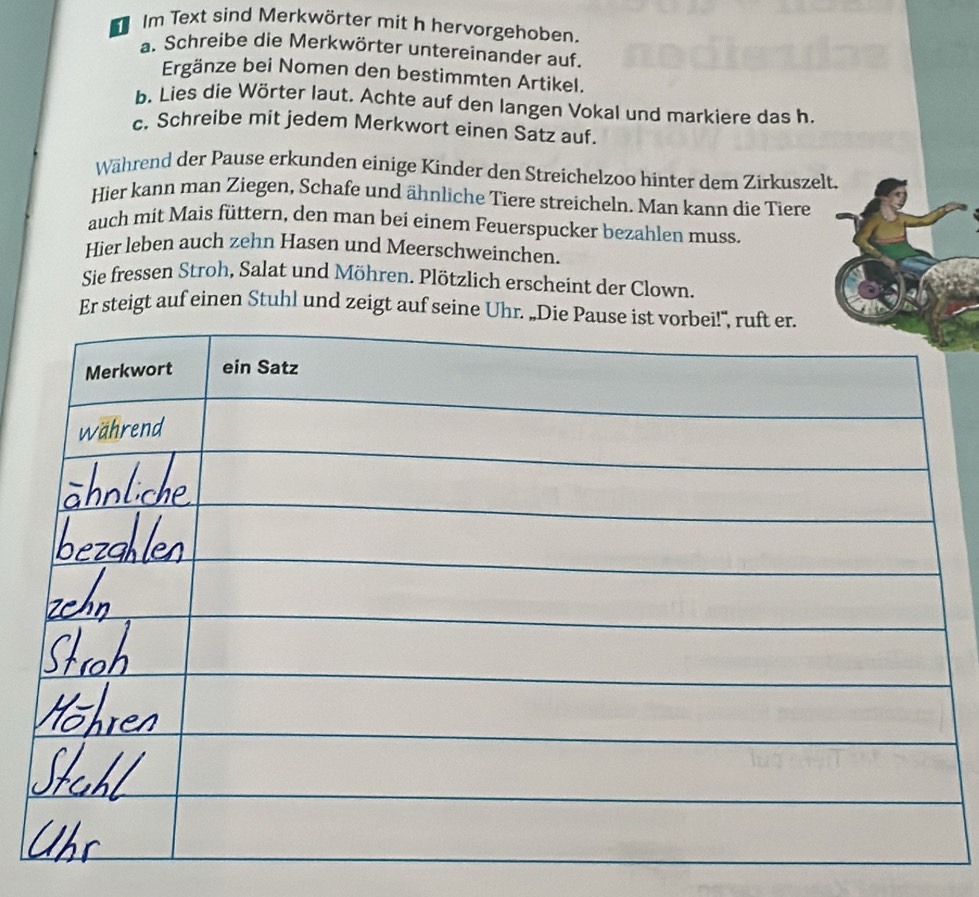 1 Im Text sind Merkwörter mit h hervorgehoben.
a. Schreibe die Merkwörter untereinander auf.
Ergänze bei Nomen den bestimmten Artikel.
b. Lies die Wörter laut. Achte auf den langen Vokal und markiere das h.
c. Schreibe mit jedem Merkwort einen Satz auf.
Während der Pause erkunden einige Kinder den Streichelzoo hinter dem Zirkuszelt.
Hier kann man Ziegen, Schafe und ähnliche Tiere streicheln. Man kann die Tiere
auch mit Mais füttern, den man bei einem Feuerspucker bezahlen muss.
Hier leben auch zehn Hasen und Meerschweinchen.
Sie fressen Stroh, Salat und Möhren. Plötzlich erscheint der Clown.
Er steigt auf einen Stuhl und zeigt auf seine Uhr. „Die Pause ist vorbei!“, ruft er.
Merkwort ein Satz
während
ähnliche
bezahlen
zehn
Stroh
Möhren
Stuhl
Uhr